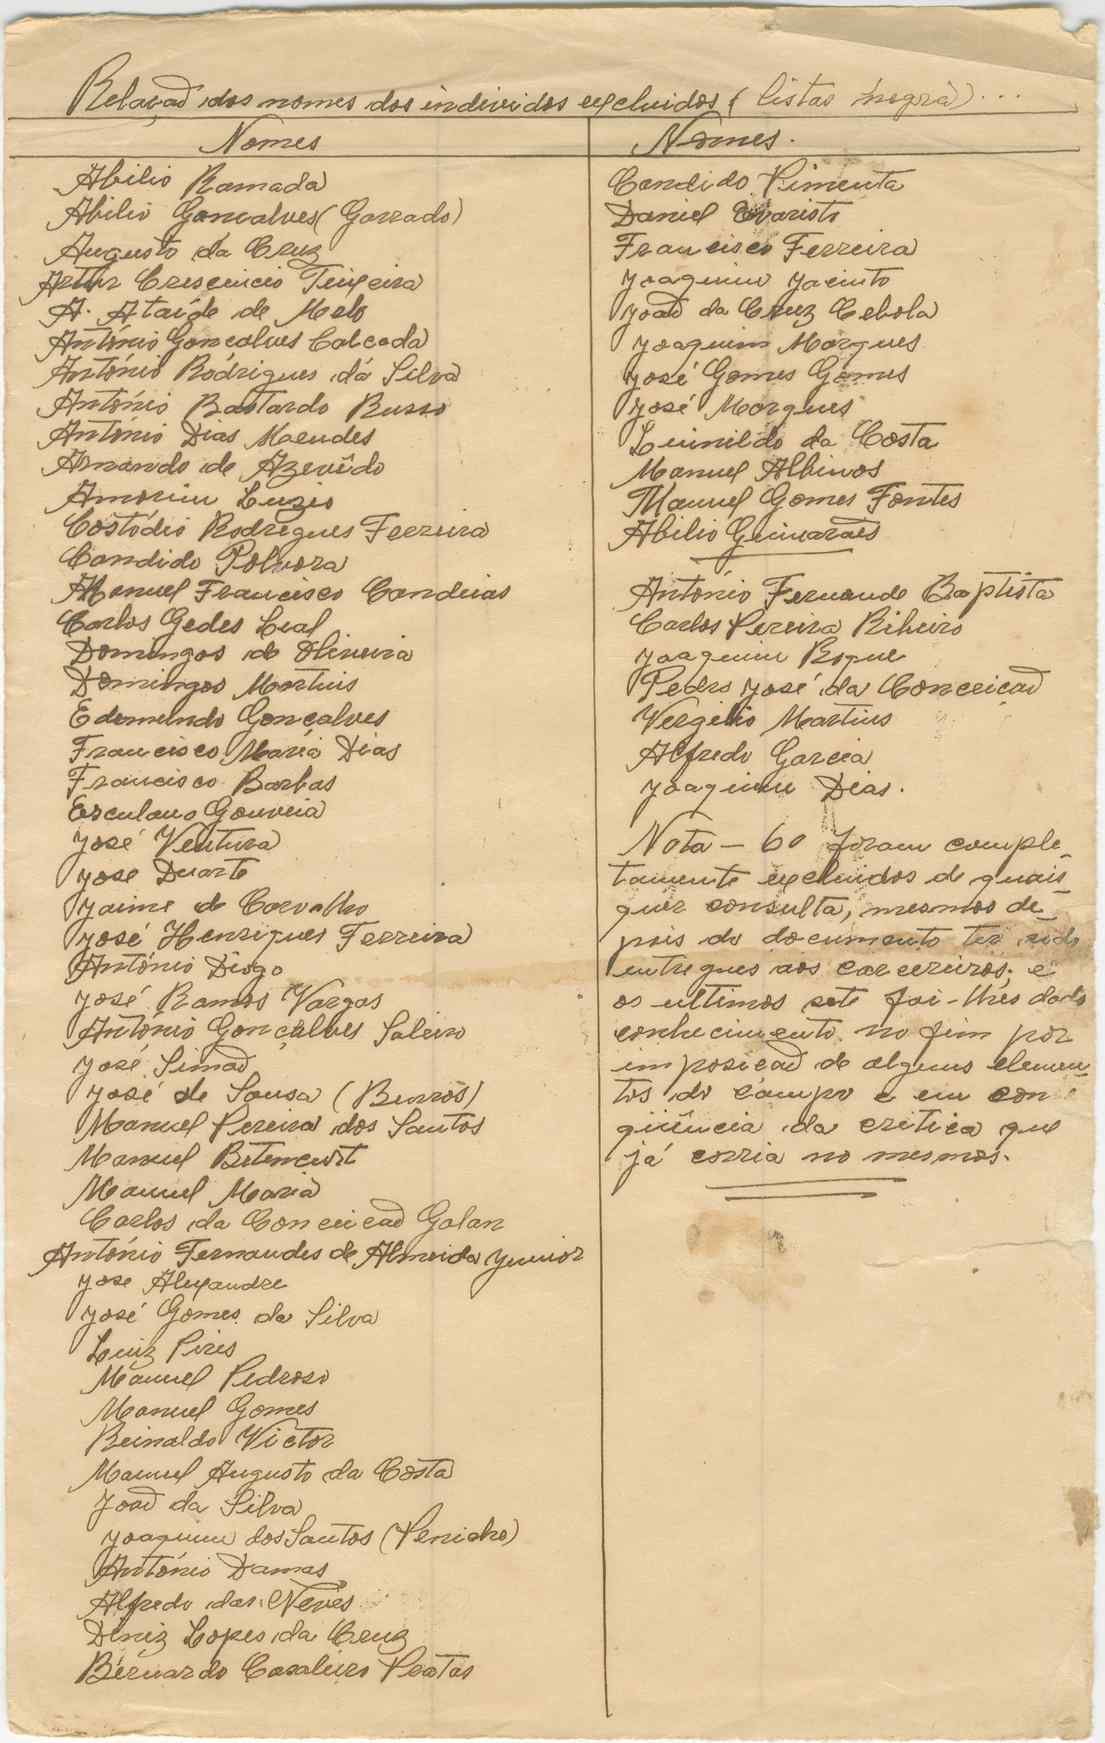 Relação dos nomes dos individos excluidos (listas negra)...
Nomes
Abilio Ramada
Abilio Goncalves (Garrado)
Augusto da Cruz
Artur Crescencio Teixeira
A. Ataíde de Melo
António Gonçalves Calcada
António Rodrigues da Silva
António Bastardo Russo
António Dias Maendes
Armando de Azevêdo
Amorim Luzio
Costódio Rodrigues Ferreira
Candido Polvora
Manuel Francisco Candeias
Carlos Gedes Leal
Domingos de Oliveira
Domingos Martins
Edemundo Gonçalves
Francisco Maria Dias
Francisco Barbas
Esculano Gouveia
José Ventura
José Duarte
Jaime de Corvalho
José Henriques Ferreira
António Diogo
José Ramos Vargas
António Gonçalves Saleiro
José Simaõ
José de Sousa (Burros)
Manuel Pereira dos Santos
Manuel Betencurt
Manuel Maria
Carlos da Conceicaõ Galan
António Fernandes de Almeida Junior
José Alexandre
José Gomes da Silva
Luiz Pires
Manuel Pedroso
Manuel Gomes
Reinaldo Victor
Manuel Augusto da Costa
Joaõ da Silva
Joaquim dos Santos (Penicho)
António Damas
Alfredo das Neves
Deniz Lopes da Cruz
Bernardo Casaleiro Pratas
Nomes.
Candido Pimenta
Daniel Evaristo
Francisco Ferreira
Joaquim Jacinto
Joaõ da Cruz Cebola
Joaquim Marques
José Gomes Gomes
José Marques
Leinildo da Costa
Manuel Albinos
Manuel Gomes Fontes
Abilio Guimarães
António Fernande Baptista
Carlos Pereira Ribeiro
Joaquim Roque
Pedro José da Conceicaõ
Vergilio Martins
Alfredo Garcia
Joaquim Dias.
Nota – 60 foram comple-
tamente excluidos de quais-
quer consulta, mesmos de-
pois do documento ter sido
entregues aos carcereiros; e
os ultimos sete foi-lhes dado
conhecimento no fim por
imposicaõ de alguns elemen-
tos do campo e em con
qüência da critica que
já corria no mesmos.